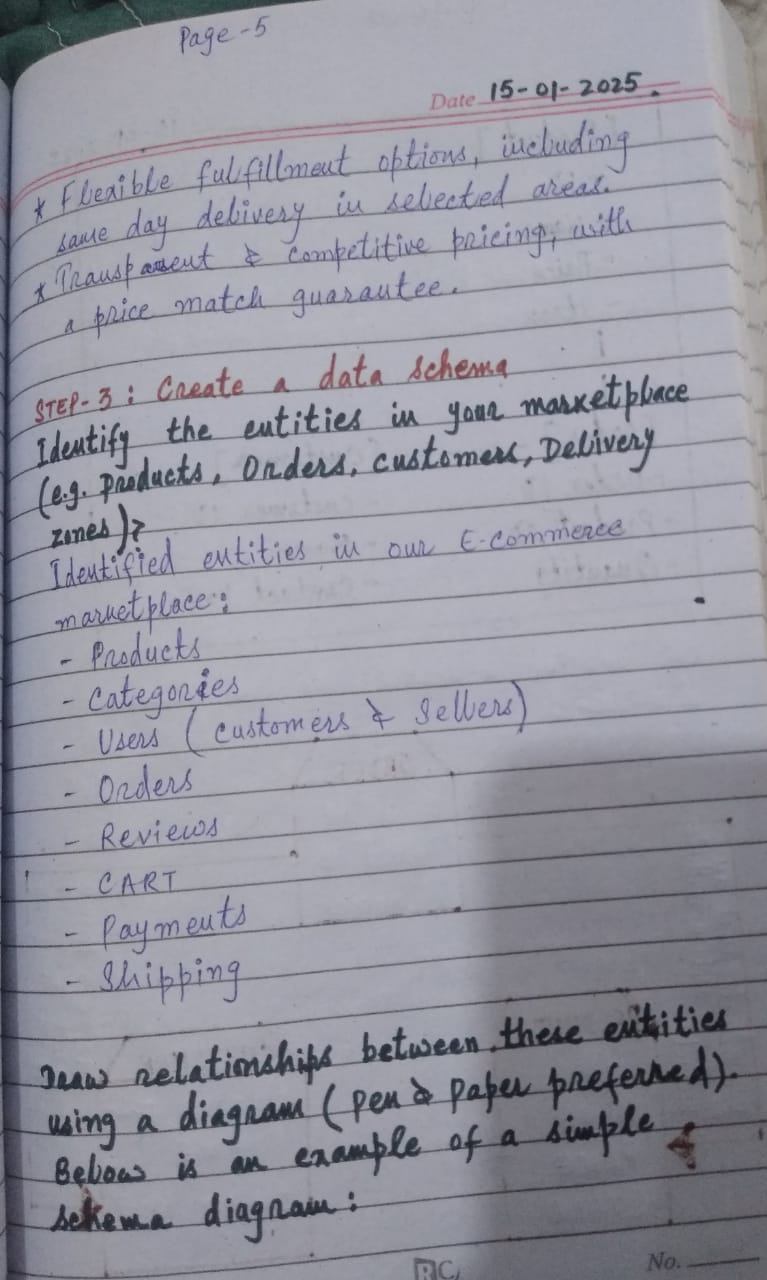 Page-5
Date 15-01-2025.
* Flexible fulfillment options, including
same day delivery in selected areas.
* Transparent & competitive pricing, with
a price match guarantee.
STEP-3: Create a data schema
Identify the entities in your marketplace
(e.g. Products, Orders, customers, Delivery
zones)?
Identified entities in our E-commerce
marketplace:
- Products
- Categories
- Users (Customers & Sellers)
- Orders
- Reviews
- CART
- Payments
- Shipping
Draw relationships between these entities
using a diagram (pen & paper preferred).
Below is an example of a simple
schema diagram:
RC
No.